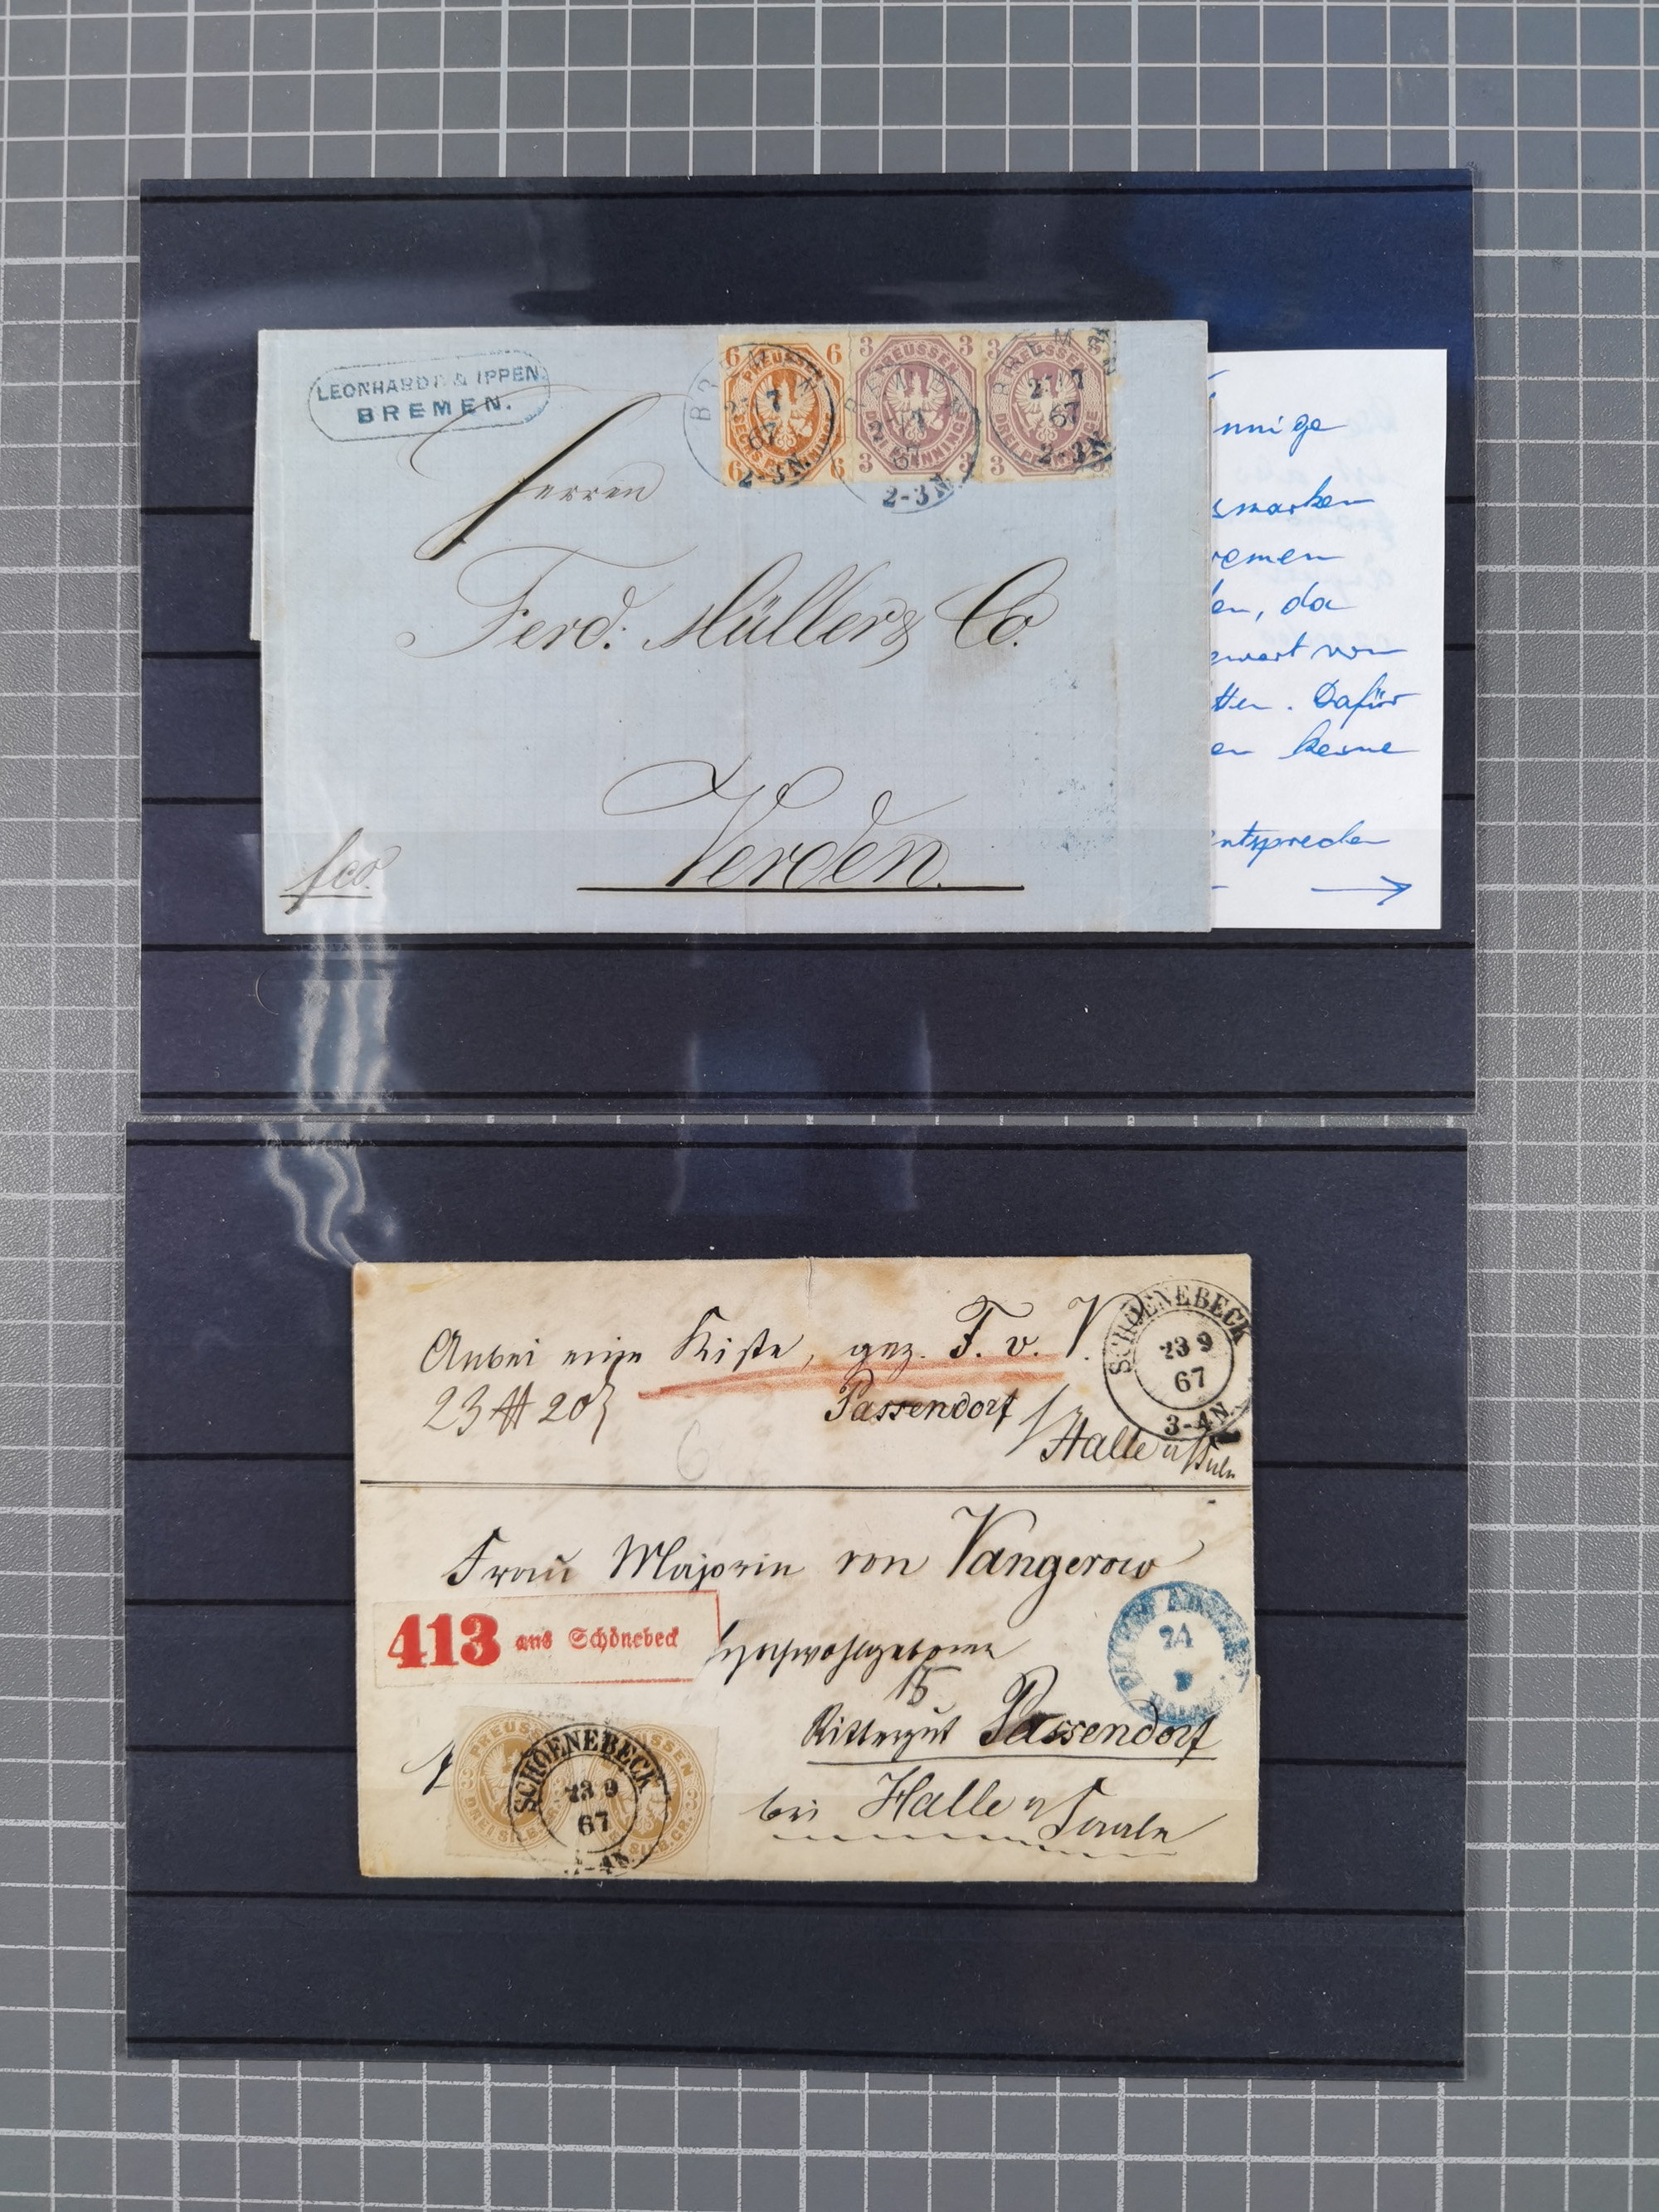 LEONHARDT & IPPEN.
BREMEN.
6 PREUSSEN 6
SECHS PFENNINGE
6 6
3 PREUSSEN 3
DREI PFENNINGE
3 3
3 PREUSSEN
DREI PFENNINGE
3
BREMEN
7
67
2-3N.
BREMEN
67
2-3N.
BREMEN
67
2-3N
Herren
Ferd: Müller & Co.
Verden.
fco.
nnige
smarken
remen
en, da
ewert von
tten. Dafür
en keine
ntsprechen
Anbei eine Kiste, gez. F. v. V.
23 ℔ 20
Passendorf
Halle a/Saale
SCHOENEBECK
23 9
67
3-4N.
6
Frau Majorin von Vangerow
413 aus Schönebeck
Hochwohlgeboren
Rittergut Passendorf
bei Halle a/Saale
24
9
PREUSSEN
DREI SILB.GR.
SCHOENEBECK
23 9
67
-4N.